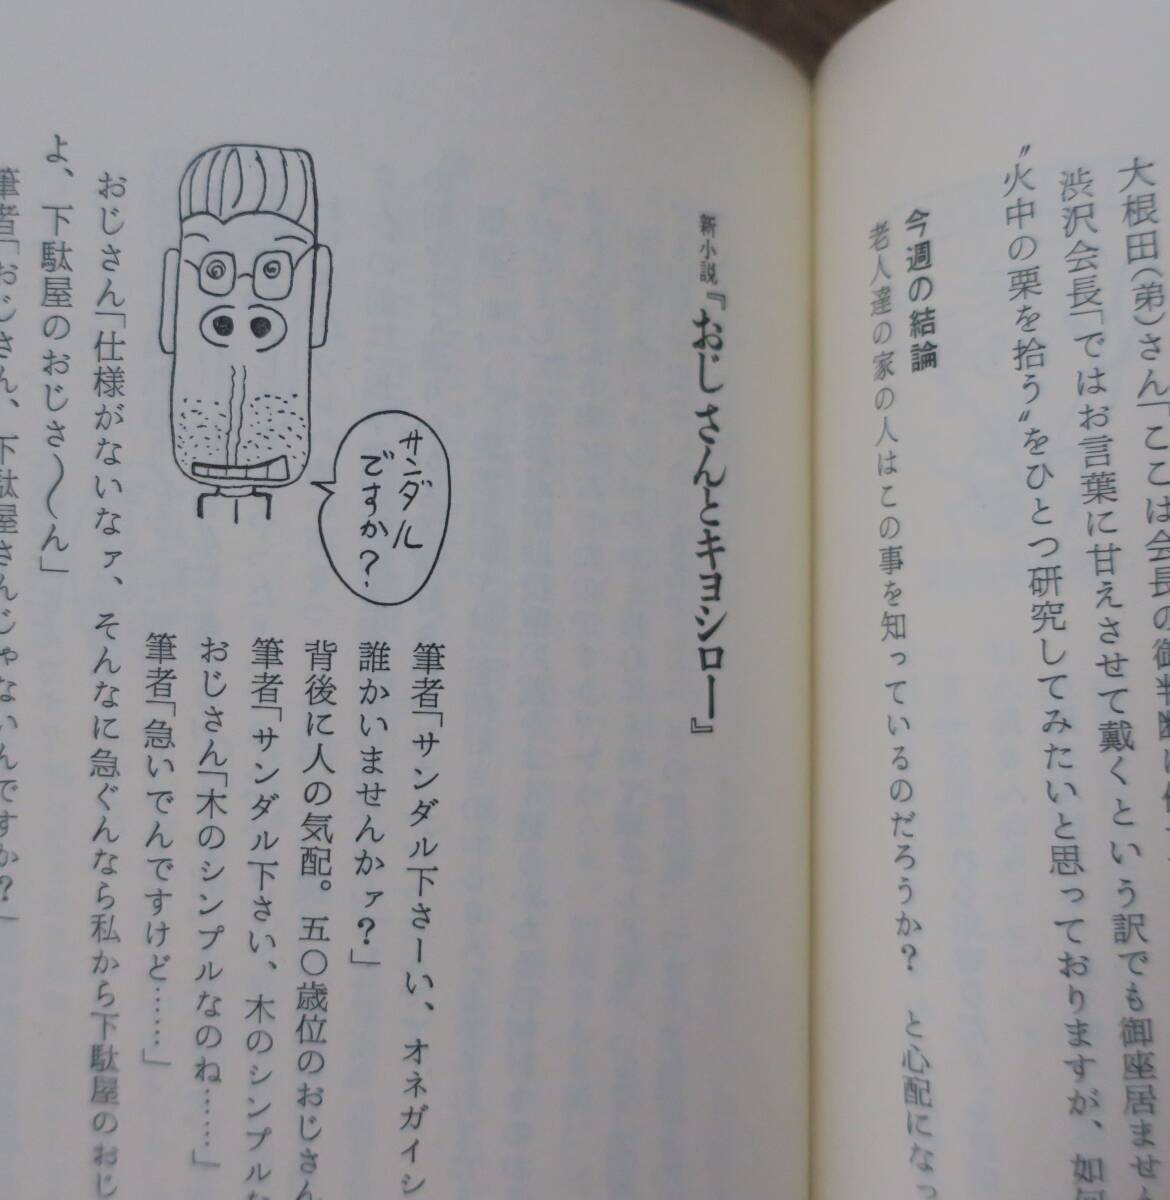 大根田(弟)さん「ここは会長の御判断に
渋沢会長「ではお言葉に甘えさせて戴くという訳でも御座居ません
〝火中の栗を拾う〟をひとつ研究してみたいと思っておりますが、如何
今週の結論
老人達の家の人はこの事を知っているのだろうか? と心配になっ
新小説『おじさんとキヨシロー』
サンダル
ですか?
筆者「サンダル下さーい、オネガイシ
誰かいませんかァ?」
背後に人の気配。五〇歳位のおじさん
筆者「サンダル下さい、木のシンプルな
おじさん「木のシンプルなのね……」
筆者「急いでんですけど……」
おじさん「仕様がないなァ、そんなに急ぐんなら私から下駄屋のおじ
よ、下駄屋のおじさ〜ん」
筆者「おじさん、下駄屋さんじゃないんですか?」